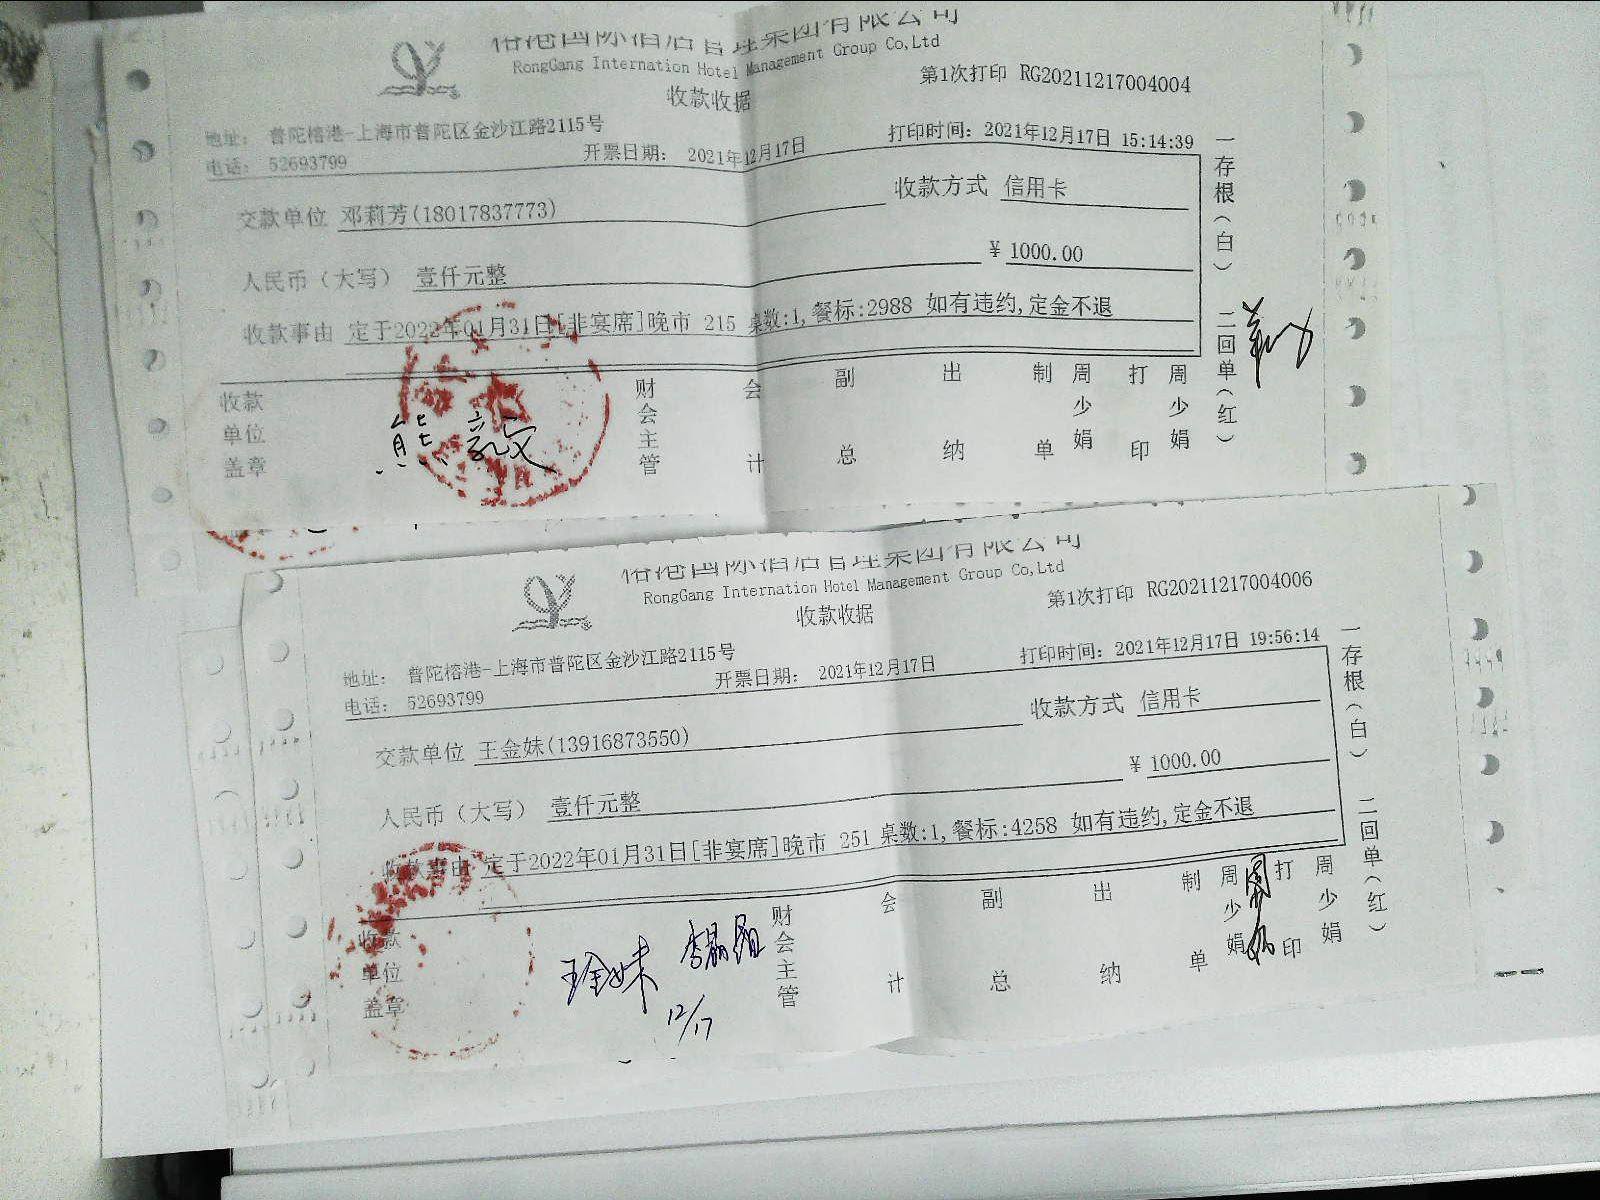 榕港国际酒店管理集团有限公司
RongGang Internation Hotel Management Group Co,Ltd
收款收据
第1次打印 RG20211217004004
地址： 普陀榕港-上海市普陀区金沙江路2115号
电话： 52693799
开票日期： 2021年12月17日
打印时间：2021年12月17日 15:14:39
交款单位 邓莉芳(18017837773)
收款方式 信用卡
人民币（大写） 壹仟元整
¥ 1000.00
收款事由 定于2022年01月31日[非宴席]晚市 215 桌数:1,餐标:2988 如有违约,定金不退
收款单位盖章
财会主管
会计
副总
出纳
制单
周少娟
打印
周少娟
一存根（白） 二回单（红）
榕港国际酒店管理集团有限公司
RongGang Internation Hotel Management Group Co,Ltd
收款收据
第1次打印 RG20211217004006
地址： 普陀榕港-上海市普陀区金沙江路2115号
电话： 52693799
开票日期： 2021年12月17日
打印时间：2021年12月17日 19:56:14
交款单位 王金妹(13916873550)
收款方式 信用卡
人民币（大写） 壹仟元整
¥ 1000.00
收款事由 定于2022年01月31日[非宴席]晚市 251 桌数:1,餐标:4258 如有违约,定金不退
收款单位盖章
王金妹
12/17
财会主管
会计
副总
出纳
制单
周少娟
打印
周少娟
一存根（白） 二回单（红）